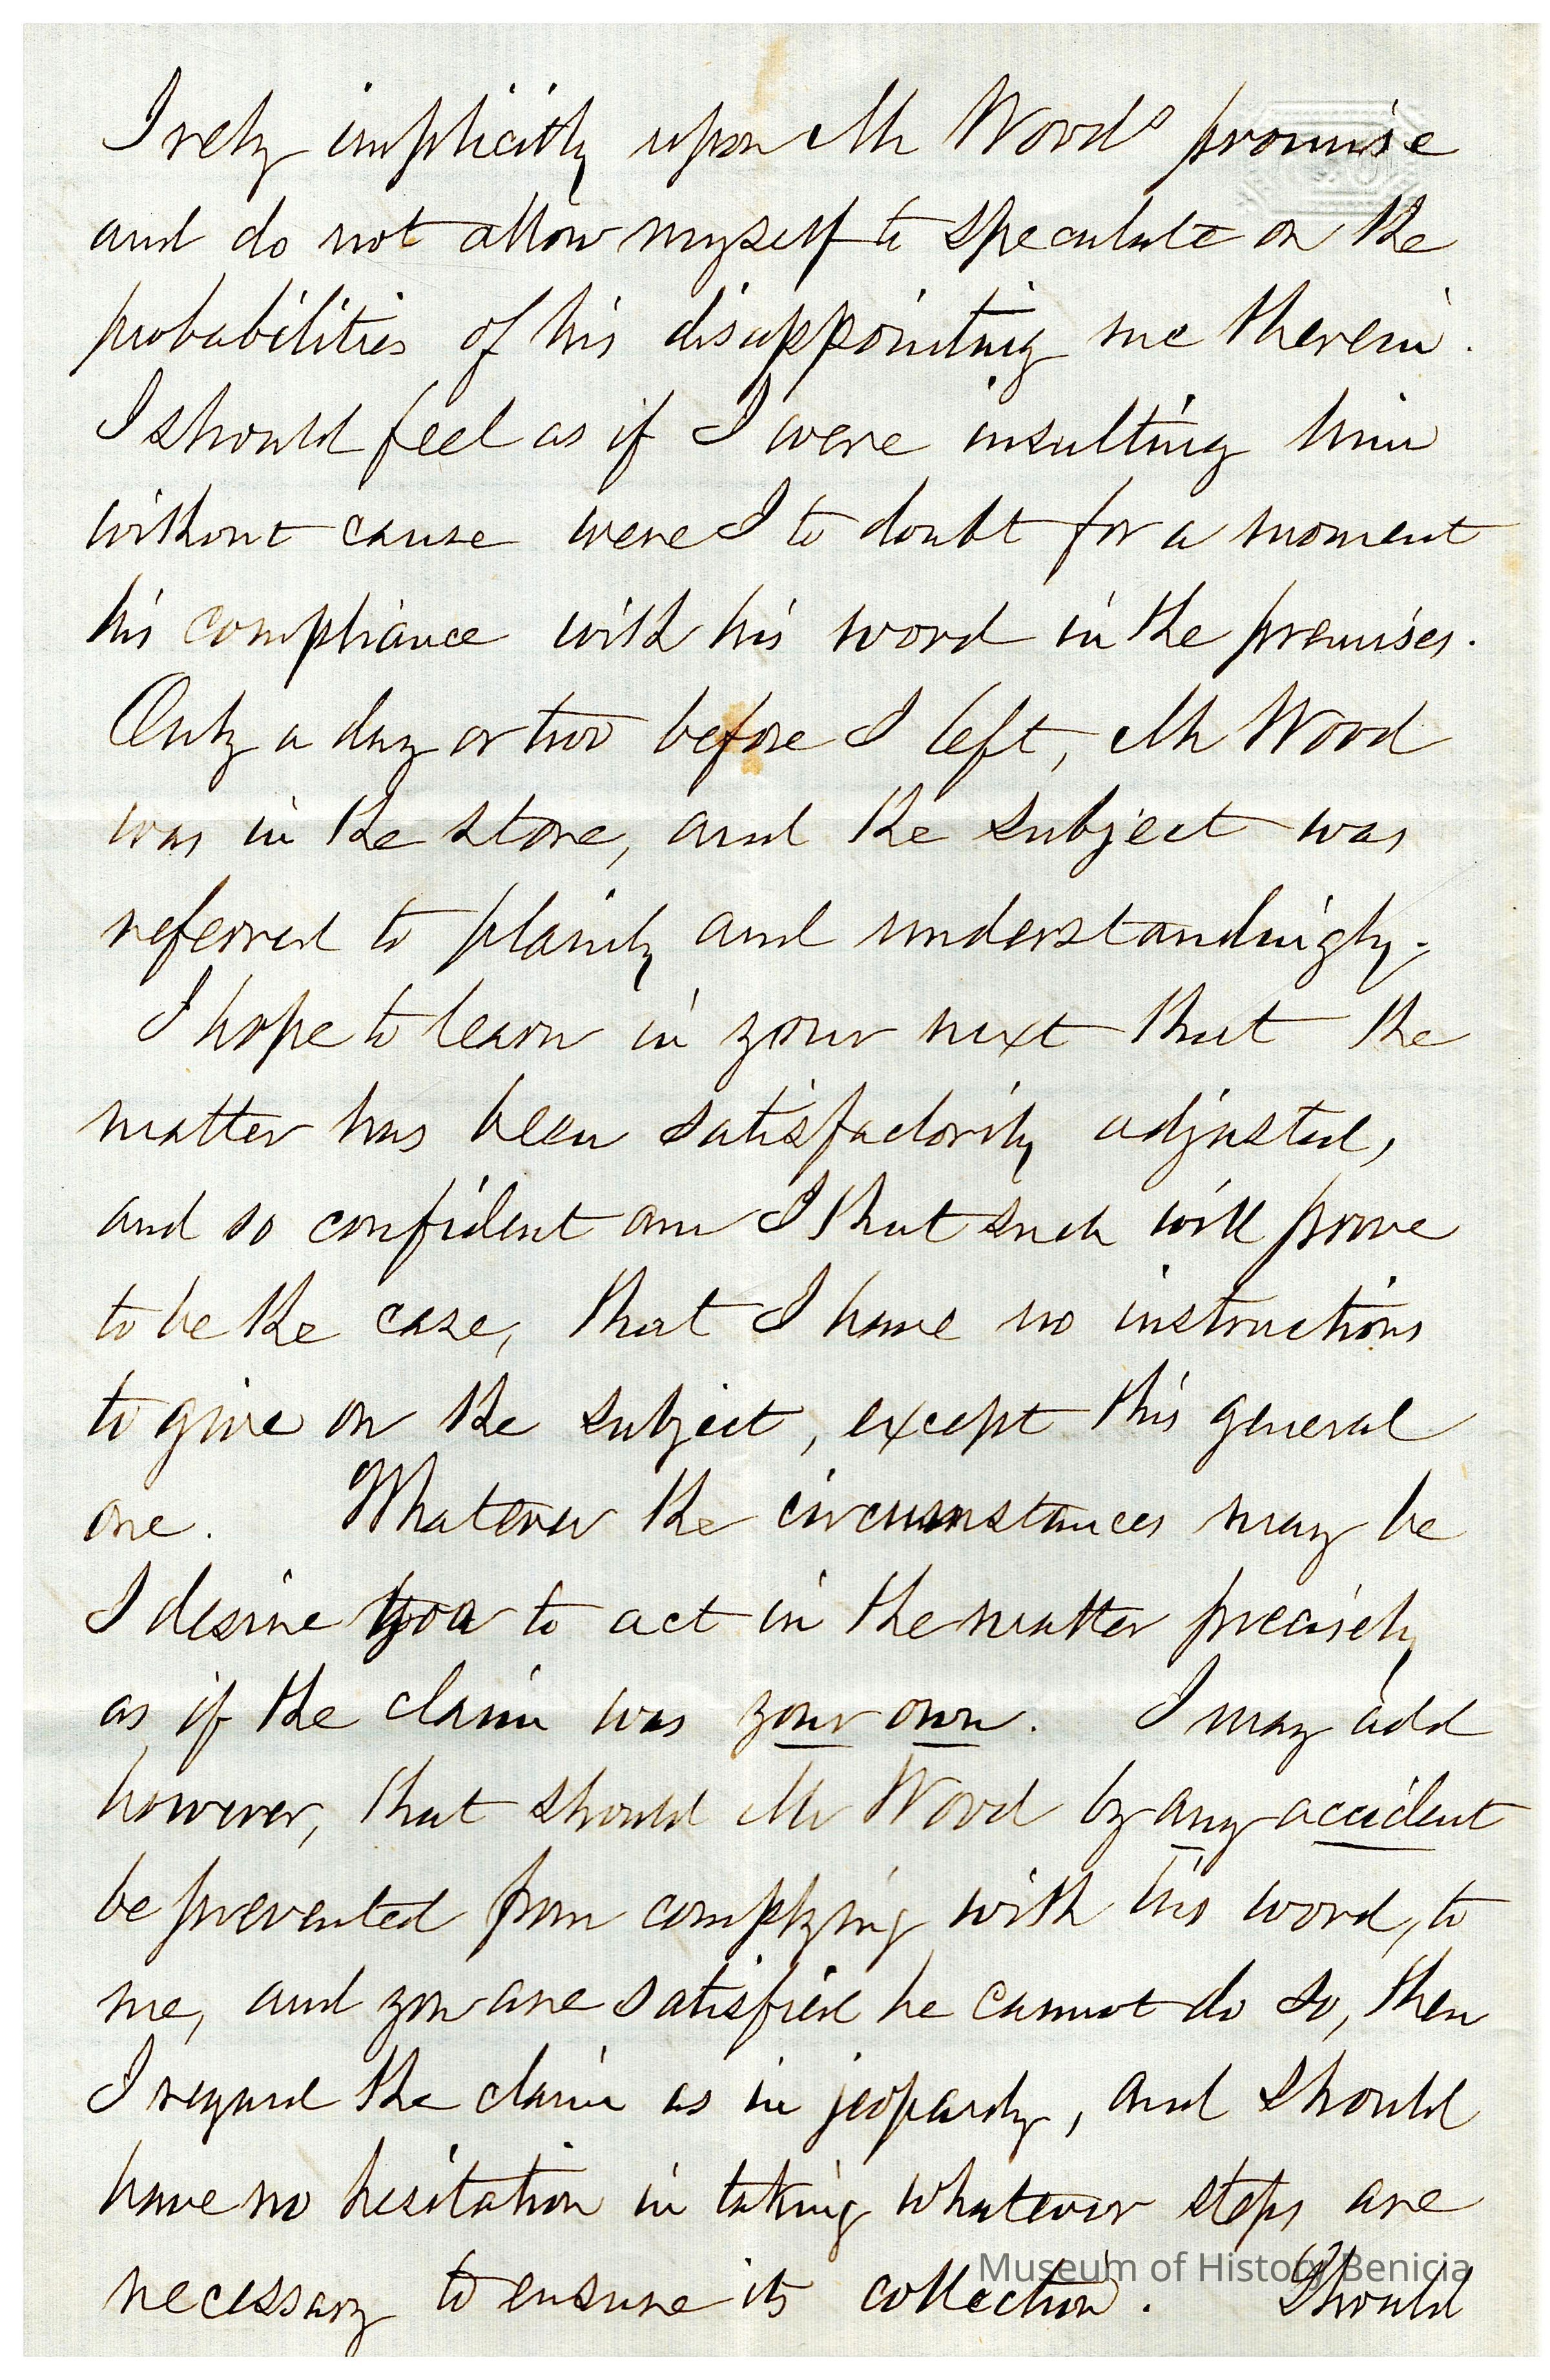 I rely implicitly upon Mr Woods promise
and do not allow myself to speculate on the
probabilities of his disappointing me therein.
I should feel as if I were insulting him
without cause were I to doubt for a moment
his compliance with his word in the premises.
Only a day or two before I left, Mr Wood
was in the store, and the subject was
referred to plainly and understandingly.
I hope to learn in your next that the
matter has been satisfactorily adjusted,
and so confident am I that such will prove
to be the case, that I have no instructions
to give on the subject, except this general
one. Whatever the circumstances may be
I desire you to act in the matter precisely
as if the claim was your own. I may add
however, that should Mr Wood by any accident
be prevented from complying with his word, to
me, and you are satisfied he cannot do so, then
I regard the claim as in jeopardy, and should
have no hesitation in taking whatever steps are
necessary to ensure its collection. Should
Museum of History Benicia